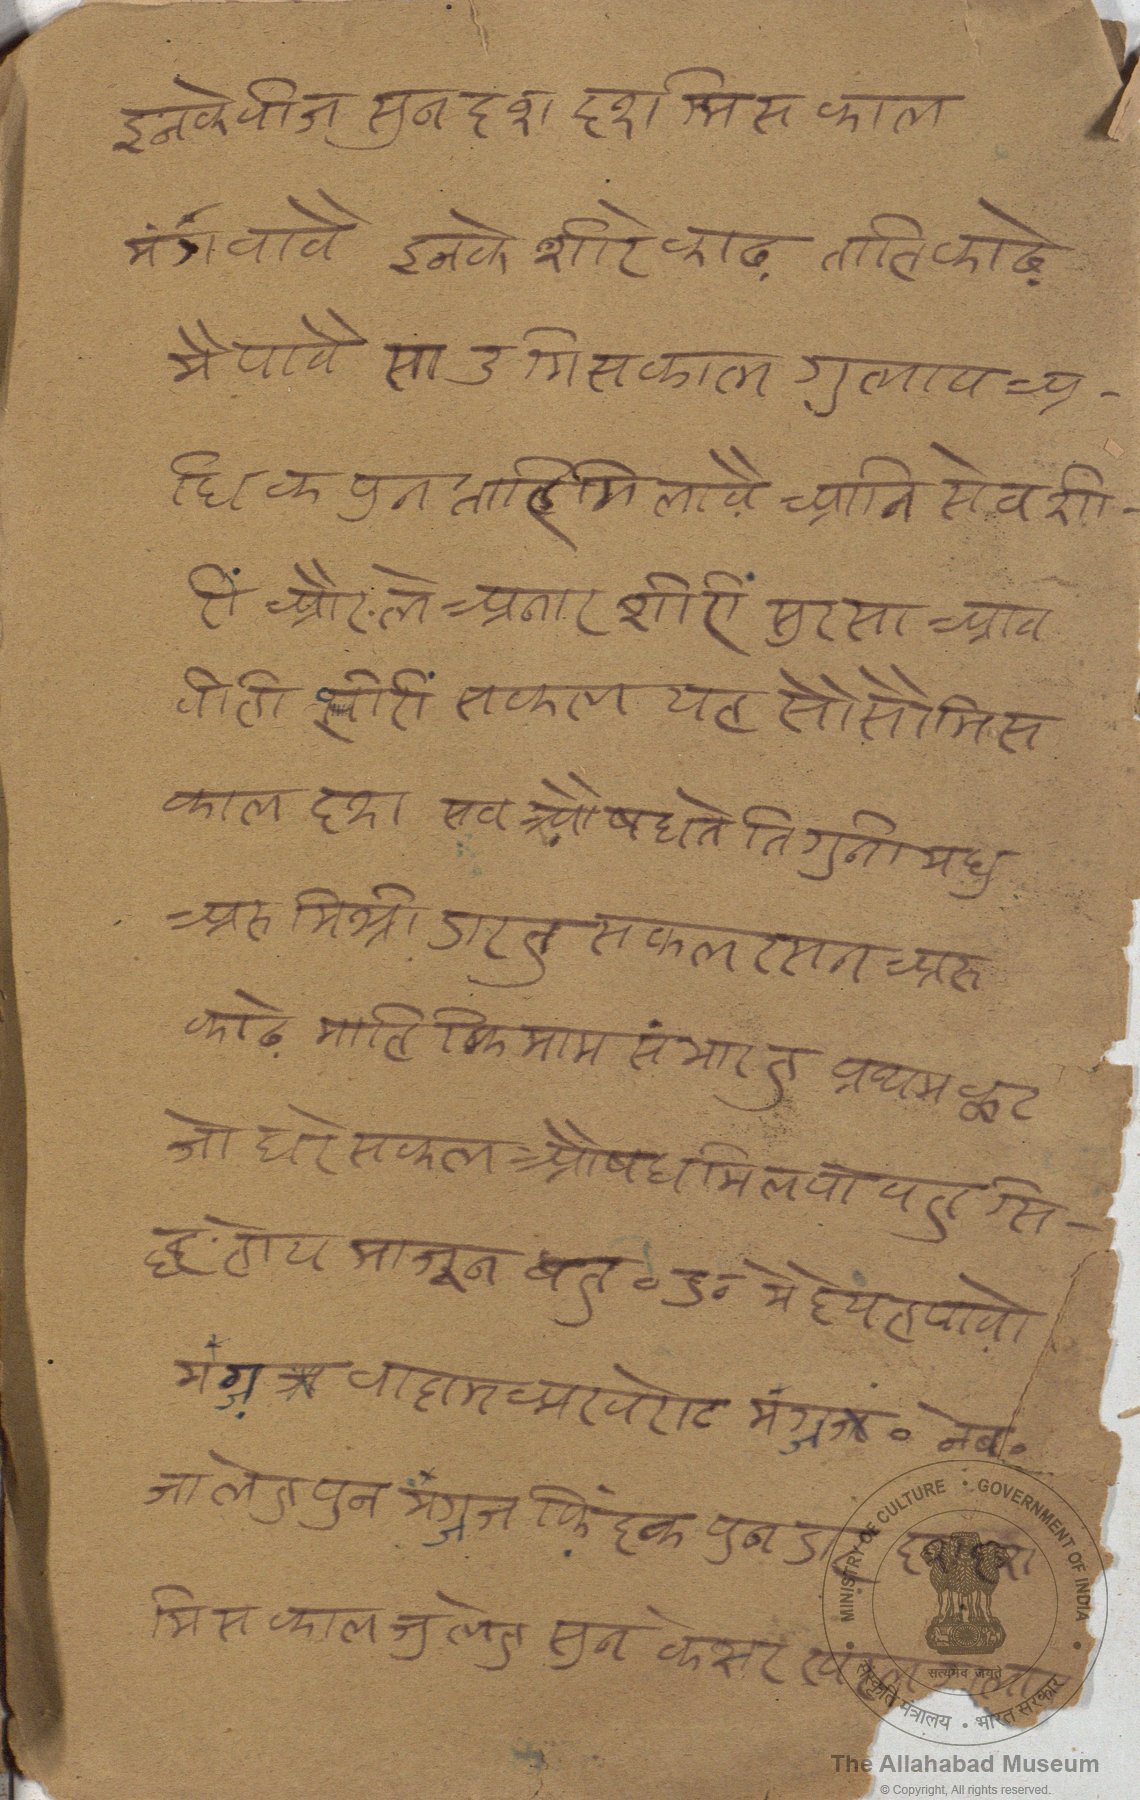 इनके वीज सुन दश दश मिसकाल
मंगवावै इनके शीरे काढ़ ताति काढ़े
मै पावै साउ मिसकाल गुलाव अ-
धिक पुन ताहि मिलावै आनि सेव शी-
रीं और ले अनार शीरीं पुरसा आव
वीही शीरीं सकल यह सौ सौ मिस
काल दश सव औषध ते तिगुनी मधु
अरु मिश्री डारहु सकल रसन अरु
काढ़े माहि किमाम संभारहु प्रथम कूट
जो धरे सकल औषध मिलवायहु सि-
द्ध होय माजून षहु ॰ ३॰ मेदे यह पावो
मंगज वादाम अरवरोट मंगज ॰ नेव॰
जा लेहु पुन मंगज फिंदक पुन डार दश दश
मिसकाल जु लेहु सुन केसर
सत्यमेव जयते
MINISTRY OF CULTURE • GOVERNMENT OF INDIA
संस्कृति मंत्रालय • भारत सरकार
The Allahabad Museum
© Copyright, All rights reserved.